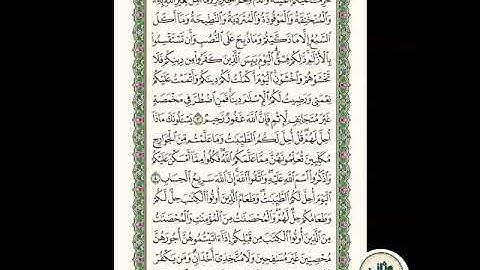 حُرِّمَتْ عَلَيْكُمُ ٱلْمَيْتَةُ وَٱلدَّمُ وَلَحْمُ ٱلْخِنزِيرِ وَمَآ أُهِلَّ لِغَيْرِ ٱللَّهِ بِهِۦ
وَٱلْمُنْخَنِقَةُ وَٱلْمَوْقُوذَةُ وَٱلْمُتَرَدِّيَةُ وَٱلنَّطِيحَةُ وَمَآ أَكَلَ
ٱلسَّبُعُ إِلَّا مَا ذَكَّيْتُمْ وَمَا ذُبِحَ عَلَى ٱلنُّصُبِ وَأَن تَسْتَقْسِمُوا۟
بِٱلْأَزْلَٰمِ ذَٰلِكُمْ فِسْقٌ ٱلْيَوْمَ يَئِسَ ٱلَّذِينَ كَفَرُوا۟ مِن دِينِكُمْ فَلَا
تَخْشَوْهُمْ وَٱخْشَوْنِ ٱلْيَوْمَ أَكْمَلْتُ لَكُمْ دِينَكُمْ وَأَتْمَمْتُ عَلَيْكُمْ
نِعْمَتِى وَرَضِيتُ لَكُمُ ٱلْإِسْلَٰمَ دِينًا فَمَنِ ٱضْطُرَّ فِى مَخْمَصَةٍ
غَيْرَ مُتَجَانِفٍ لِّإِثْمٍ فَإِنَّ ٱللَّهَ غَفُورٌ رَّحِيمٌ ٣ يَسْـَٔلُونَكَ مَاذَآ
أُحِلَّ لَهُمْ قُلْ أُحِلَّ لَكُمُ ٱلطَّيِّبَٰتُ وَمَا عَلَّمْتُم مِّنَ ٱلْجَوَارِحِ
مُكَلِّبِينَ تُعَلِّمُونَهُنَّ مِمَّا عَلَّمَكُمُ ٱللَّهُ فَكُلُوا۟ مِمَّآ أَمْسَكْنَ عَلَيْكُمْ
وَٱذْكُرُوا۟ ٱسْمَ ٱللَّهِ عَلَيْهِ وَٱتَّقُوا۟ ٱللَّهَ إِنَّ ٱللَّهَ سَرِيعُ ٱلْحِسَابِ ٤
ٱلْيَوْمَ أُحِلَّ لَكُمُ ٱلطَّيِّبَٰتُ وَطَعَامُ ٱلَّذِينَ أُوتُوا۟ ٱلْكِتَٰبَ حِلٌّ لَّكُمْ
وَطَعَامُكُمْ حِلٌّ لَّهُمْ وَٱلْمُحْصَنَٰتُ مِنَ ٱلْمُؤْمِنَٰتِ وَٱلْمُحْصَنَٰتُ
مِنَ ٱلَّذِينَ أُوتُوا۟ ٱلْكِتَٰبَ مِن قَبْلِكُمْ إِذَآ ءَاتَيْتُمُوهُنَّ أُجُورَهُنَّ
مُحْصِنِينَ غَيْرَ مُسَٰفِحِينَ وَلَا مُتَّخِذِىٓ أَخْدَانٍ وَمَن يَكْفُرْ